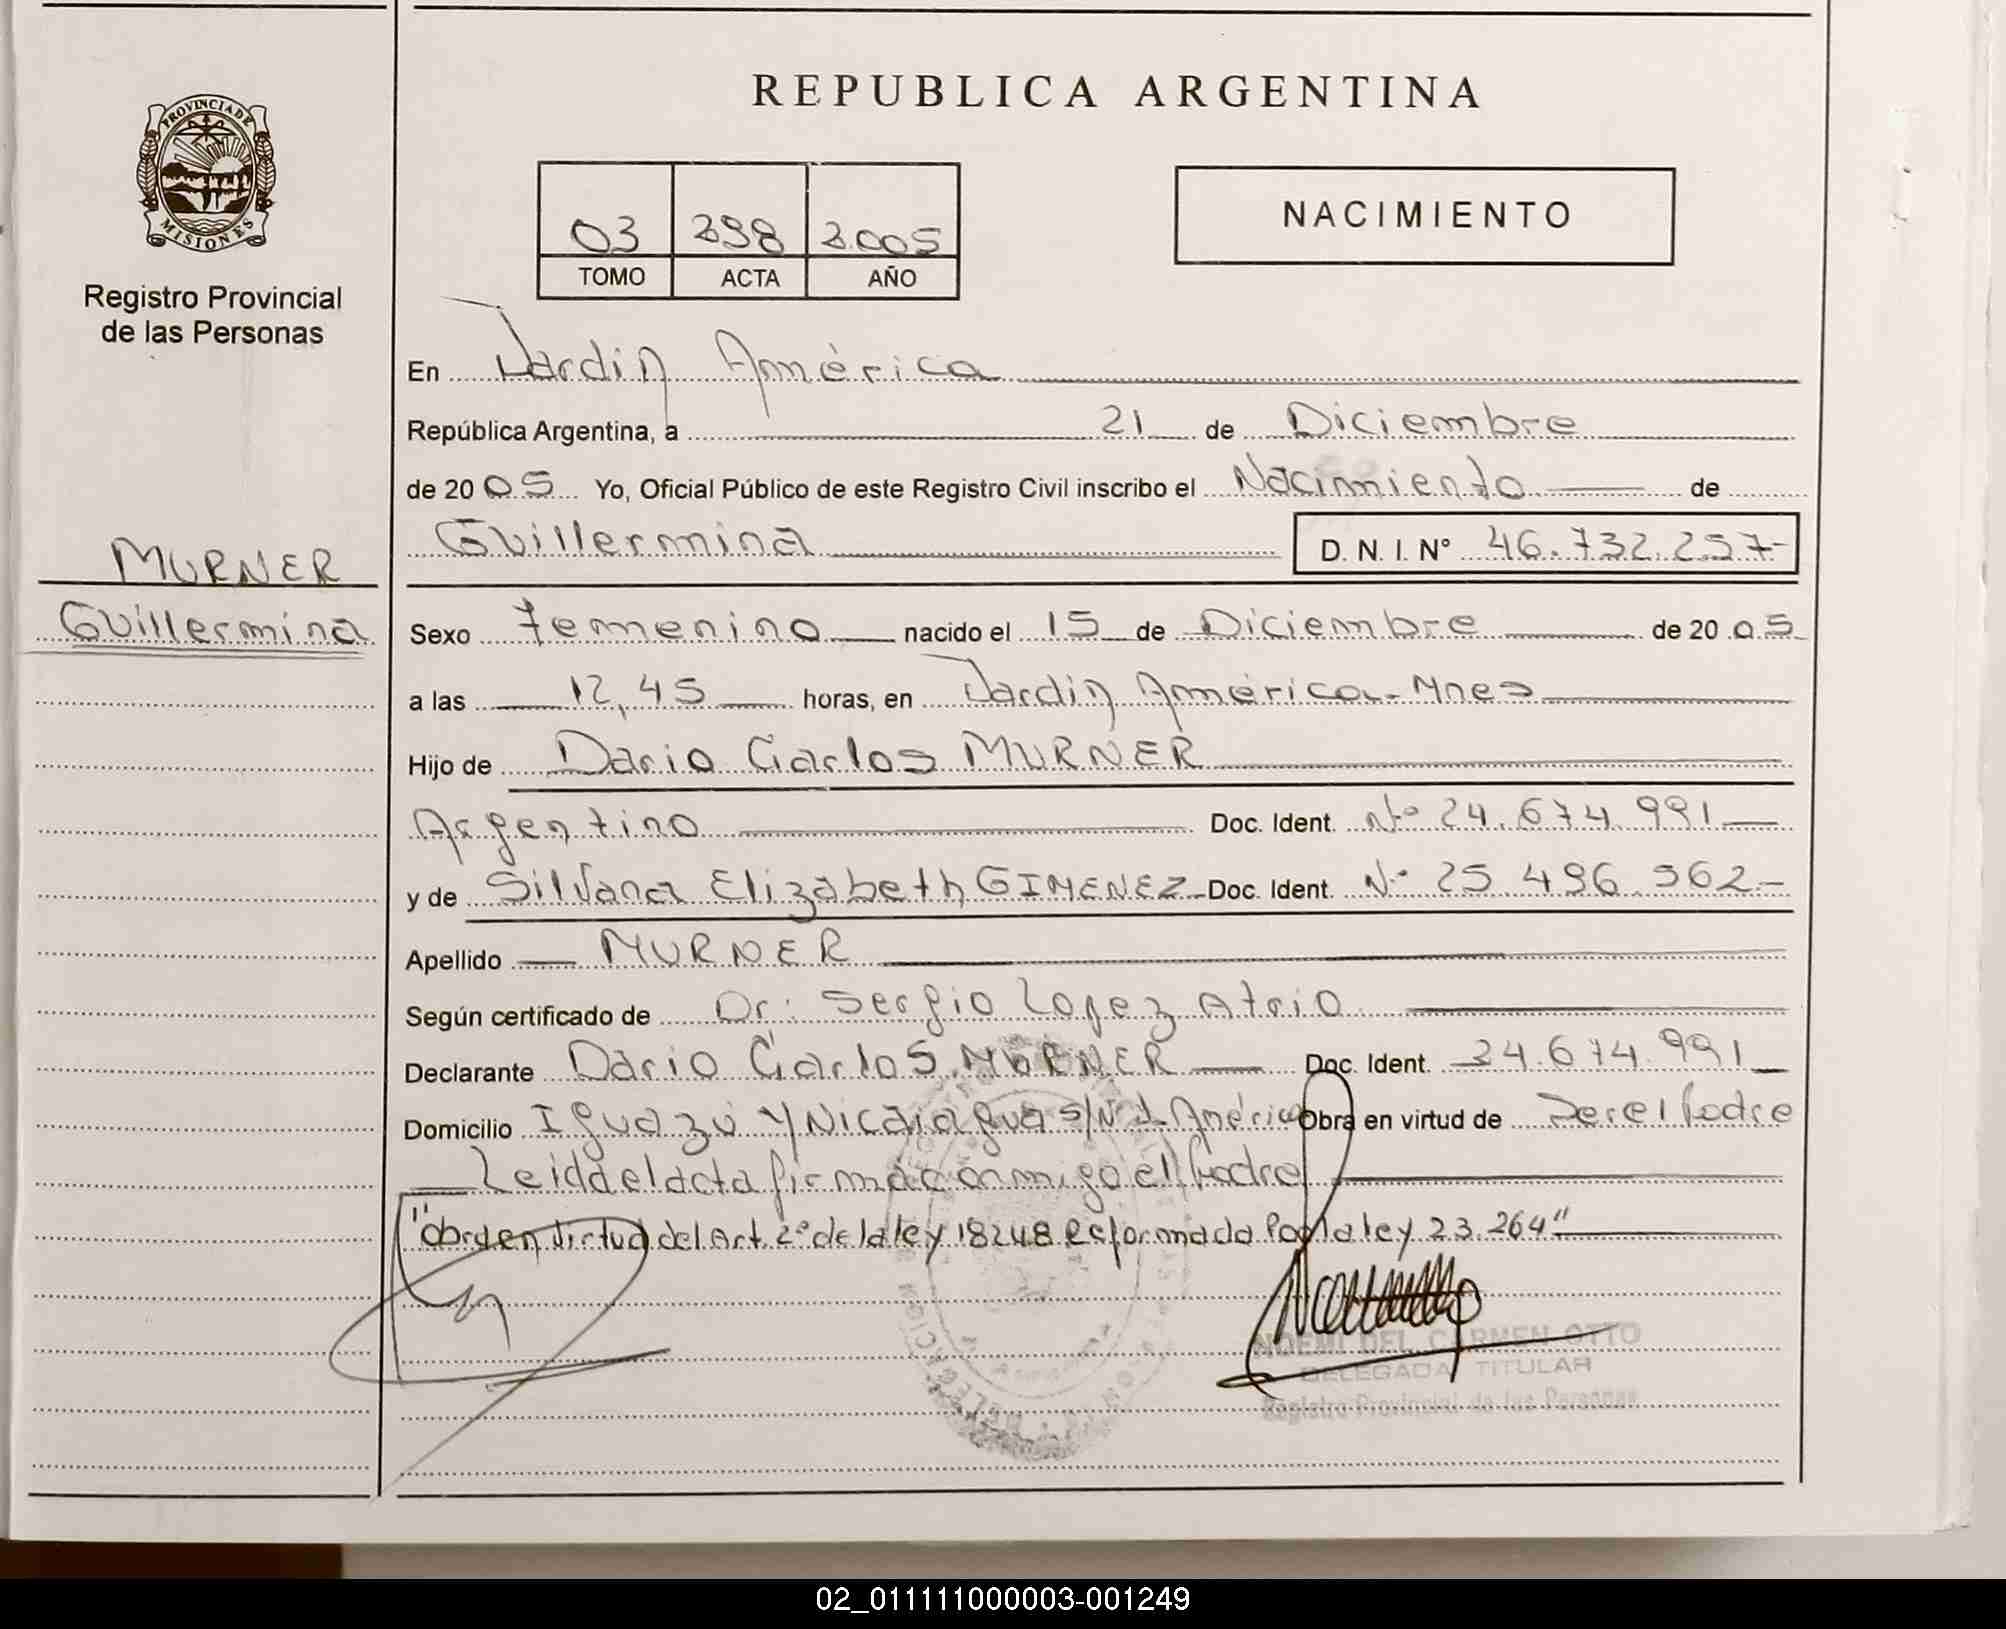 REPUBLICA ARGENTINA
PROVINCIA DE
MISIONES
Registro Provincial
de las Personas
03 298 2.005
TOMO ACTA AÑO
NACIMIENTO
En Jardin América
República Argentina, a 21 de Diciembre
de 20 05 Yo, Oficial Público de este Registro Civil inscribo el Nacimiento de
Guillermina D. N. I. Nº 46.732.257-
MURNER
Guillermina
Sexo Femenino nacido el 15 de Diciembre de 20 05
a las 12,45 horas, en Jardin América-Mnes
Hijo de Dario Carlos MURNER
Argentino Doc. Ident. Nº 24.674.991
y de Silvana Elizabeth GIMENEZ Doc. Ident. Nº 25 496.562-
Apellido MURNER
Según certificado de Dr: Sergio Lopez Atrio
Declarante Dario Carlos MURNER Doc. Ident. 24.674.991
Domicilio Iguazú y Nicaragua s/N J. América Obra en virtud de Ser el Padre
Leidа el acta firma conmigo el Padre
"Obra en virtud del Art. 2º de la ley 18248 Reformada Por la ley 23.264"
NOEMI DEL CARMEN OTTO
DELEGADA TITULAR
Registro Provincial de las Personas
02_011111000003-001249